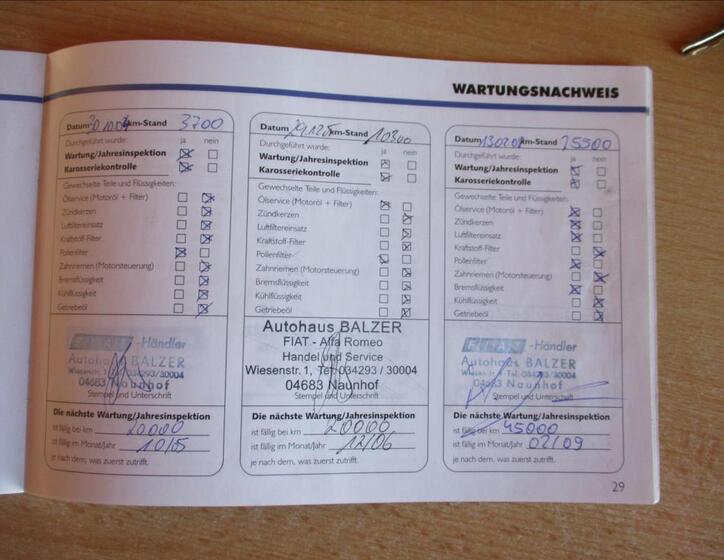 WARTUNGSNACHWEIS
Datum 30 10 04 km-Stand 3700
Durchgeführt wurde: ja nein
Wartung/Jahresinspektion
Karosseriekontrolle
Gewechselte Teile und Flüssigkeiten:
Ölservice (Motoröl + Filter)
Zündkerzen
Luftfiltereinsatz
Kraftstoff-Filter
Pollenfilter
Zahnriemen (Motorsteuerung)
Bremsflüssigkeit
Kühlflüssigkeit
Getriebeöl
FIAT -Händler
Autohaus BALZER
Wiesenstr. 1, Tel. 034293/30004
04683 Naunhof
Stempel und Unterschrift
Die nächste Wartung/Jahresinspektion
ist fällig bei km 20000
ist fällig im Monat/Jahr 10/05
je nach dem, was zuerst zutrifft.
Datum km-Stand 10300
Durchgeführt wurde: ja nein
Wartung/Jahresinspektion
Karosseriekontrolle
Gewechselte Teile und Flüssigkeiten:
Ölservice (Motoröl + Filter)
Zündkerzen
Luftfiltereinsatz
Kraftstoff-Filter
Pollenfilter
Zahnriemen (Motorsteuerung)
Bremsflüssigkeit
Kühlflüssigkeit
Getriebeöl
Autohaus BALZER
FIAT - Alfa Romeo
Handel und Service
Wiesenstr. 1, Tel. 034293 / 30004
04683 Naunhof
Stempel und Unterschrift
Die nächste Wartung/Jahresinspektion
ist fällig bei km 20000
ist fällig im Monat/Jahr 12/06
je nach dem, was zuerst zutrifft.
Datum km-Stand 25500
Durchgeführt wurde: ja nein
Wartung/Jahresinspektion
Karosseriekontrolle
Gewechselte Teile und Flüssigkeiten:
Ölservice (Motoröl + Filter)
Zündkerzen
Luftfiltereinsatz
Kraftstoff-Filter
Pollenfilter
Zahnriemen (Motorsteuerung)
Bremsflüssigkeit
Kühlflüssigkeit
Getriebeöl
FIAT -Händler
Autohaus BALZER
Wiesenstr. 1 - Tel. 034293/30004
04683 Naunhof
Stempel und Unterschrift
Die nächste Wartung/Jahresinspektion
ist fällig bei km 45000
ist fällig im Monat/Jahr 02/09
je nach dem, was zuerst zutrifft.
29